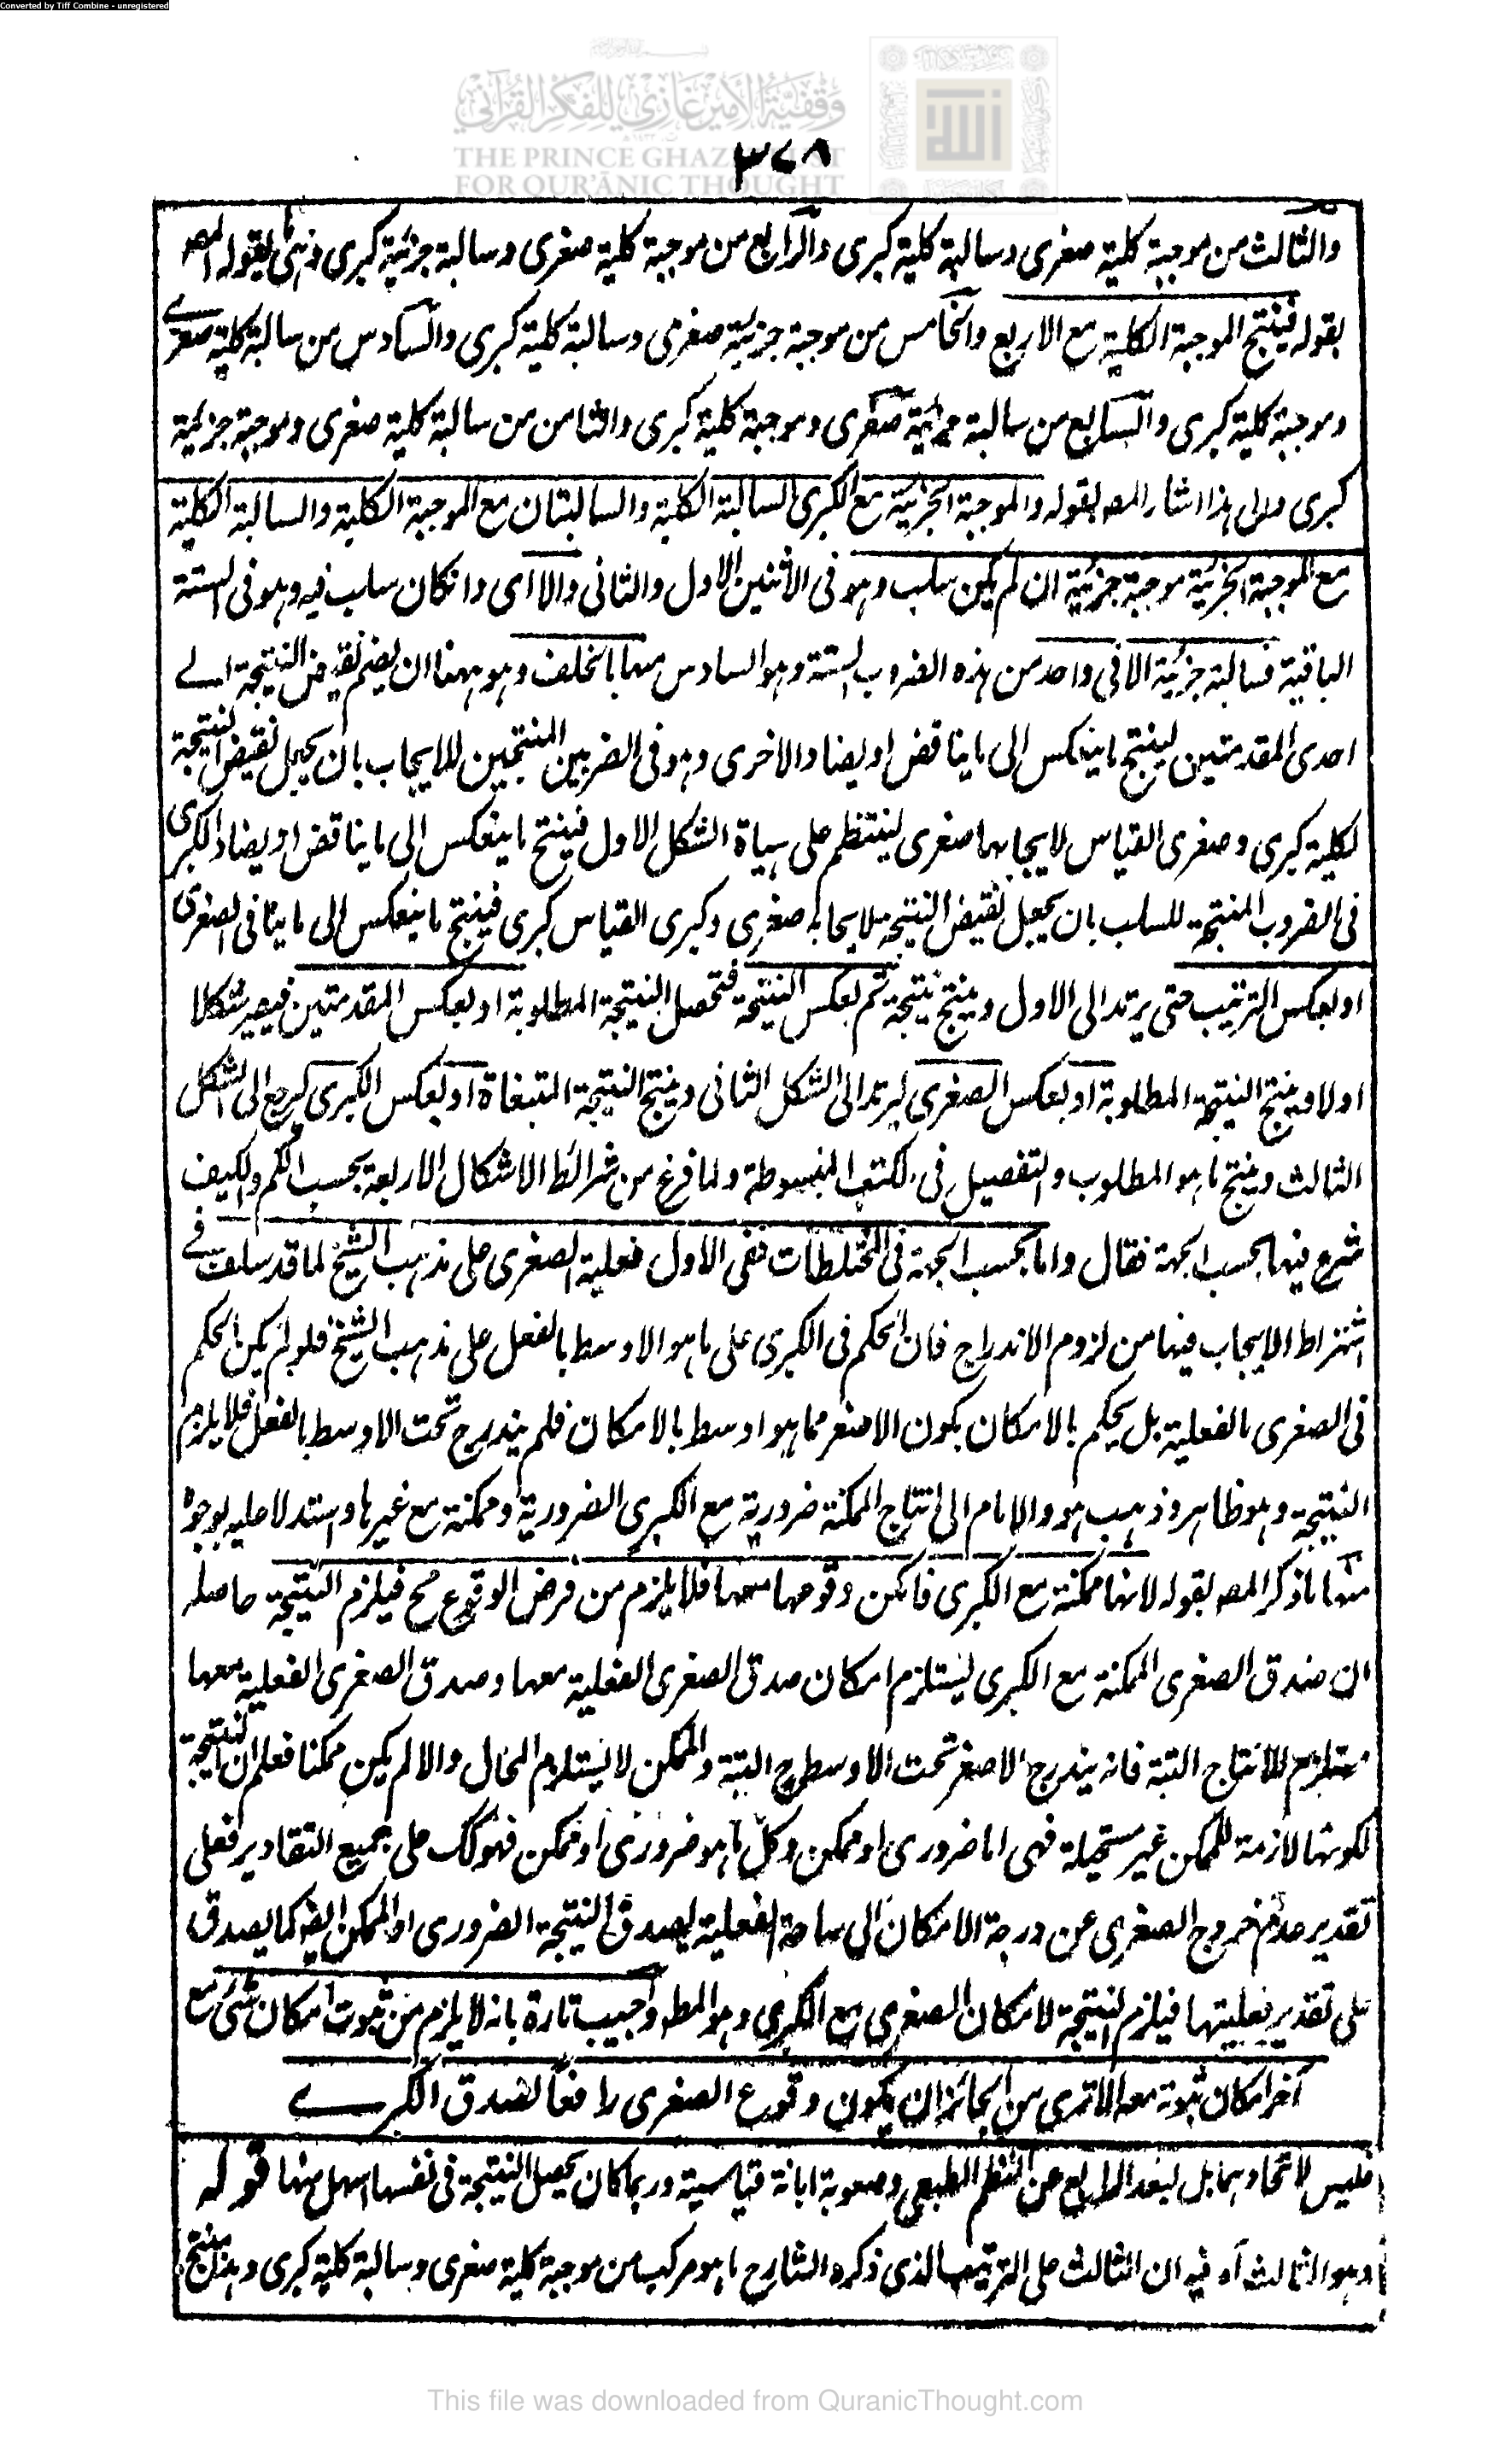 Converted by Tiff Combine - unregistered
وقفية الأمير غازي للفكر القرآني
THE PRINCE GHAZI TRUST
FOR QUR'ĀNIC THOUGHT
٣٧٨
والثالث من موجبة كلية صغرى وسالبة كلية كبرى والرابع من موجبة كلية صغرى وسالبة جزئية كبرى بقوله المص
بقوله فينتج الموجبة الكلية مع الاربع والخامس من موجبة جزئية صغرى وسالبة كلية كبرى والسادس من سالبة كلية صغرى
وموجبة كلية كبرى والسابع من سالبة جزئية صغرى وموجبة كلية كبرى والثامن من سالبة كلية صغرى وموجبة جزئية
كبرى والى هذا اشار المصـ بقوله والموجبة الجزئية مع الكبرى السالبة الكلية والسالبتان مع الموجبة الكلية والسالبة الكلية
مع الموجبة الجزئية موجبة جزئية ان لم يكن سلب وهو فى الاثنين الاول والثانى والا اى وان كان سلب فيه وهو فى الستة
الباقية فسالبة جزئية الا فى واحد من هذه الضروب الستة وهو السادس منها بالخلف وهو ههنا ان يضم نقيض النتيجة الى
احدى المقدمتين لينتج ما ينعكس الى ما يناقض او يضاد الاخرى وهو فى الضربين المنتجين للايجاب بان يجعل نقيض النتيجة
لكلية كبرى وصغرى القياس لايجابها صغرى لينتظم على هياة الشكل الاول فينتج ما ينعكس الى ما يناقض او يضاد الكبرى
فى الضروب المنتجة للسلب بان يجعل نقيض النتيجة لايجابه صغرى وكبرى القياس كبرى فينتج ما ينعكس الى ما ينافى الصغرى
او بعكس الترتيب حتى يرتد الى الاول وينتج نتيجة ثم بعكس النتيجة فتحصل النتيجة المطلوبة او بعكس المقدمتين فيصير شكلا
اولا وينتج النتيجة المطلوبة او بعكس الصغرى ليرتد الى الشكل الثانى وينتج النتيجة المتبغاة او بعكس الكبرى ليرجع الى الشكل
الثالث وينتج ما هو المطلوب والتفصيل فى الكتب المبسوطة ولما فرغ من شرائط الاشكال الاربعة بحسب الكم والكيف
شرع فيها بحسب الجهة فقال واما بحسب الجهة فى المختلطات ففى الاول فعلية الصغرى على مذهب الشيخ لما قد سلف فى
اشتراط الايجاب فيها من لزوم الاندراج فان الحكم فى الكبرى على ما هو الاوسط بالفعل على مذهب الشيخ فلو لم يكن الحكم
فى الصغرى بالفعلية بل يحكم بالامكان بكون الاصغر مما هو اوسط بالامكان فلم يندرج تحت الاوسط بالفعل فلا يلزم
النتيجة وهو ظاهر وذهب هو والامام الى انتاج الممكنة ضرورية مع الكبرى الضرورية وممكنة مع غيرها واستدلا عليه بوجوه
منها ما ذكر المصـ بقوله لانها ممكنة مع الكبرى فامكن وقوعها معها فلا يلزم من فرض الوقوع مح فيلزم النتيجة حاصله
ان صدق الصغرى الممكنة مع الكبرى ليستلزم امكان صدق الصغرى الفعلية معها وصدق الصغرى الفعلية معها
مستلزم للانتاج البتة فانه يندرج الاصغر تحت الاوسط ح البتة والممكن لا يستلزم المحال والا لم يكن ممكنا فعلم ان النتيجة
لكونها لازمة للممكن غير مستحيلة فهى اما ضرورى او ممكن وكل ما هو ضرورى او ممكن فهو كك على جميع التقادير فعلى
تقدير عدم خروج الصغرى عن درجة الامكان الى ساحة الفعلية يصدق النتيجة الضرورى او الممكن ايضـ كما يصدق
على تقدير فعليتها فيلزم النتيجة لامكان الصغرى مع الكبرى وهو المط واجيب تارة بانه لا يلزم من ثبوت امكان شئ مع
آخر امكان ثبوته معه الا ترى من الجائز ان يكون وقوع الصغرى رافعا لصدق الكبرى
فليس لاتحادهما بل لبعد الرابع عن النظم الطبعى وصعوبة ابانة قياسية وربما كان يحصل النتيجة فى نفسها اسهل منها قوله
وهو الثالث آه فيه ان الثالث على الترتيب الذى ذكره الشارح ما هو مركب من موجبة كلية صغرى وسالبة كلية كبرى وهذا ينتج
This file was downloaded from QuranicThought.com